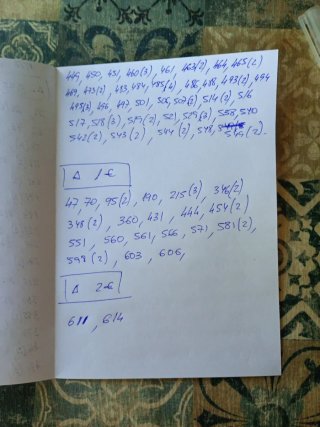 449, 450, 451, 460(3), 461, 463(2), 464, 465(2)
469, 473(2), 483, 484, 485(4), 486, 488, 493(2), 494
495(3), 496, 497, 501, 506, 507(2), 514(2), 516
517, 518(3), 519(2), 521, 529(3), 538, 540
542(2), 543(2), 544(2), 548,
549(2).
A 1€
47, 70, 95(2), 190, 215(3), 346(2)
348(2), 360, 431, 444, 454(2)
551, 560, 561, 566, 571, 581(2),
598(2), 603, 606,
A 2€
611, 614